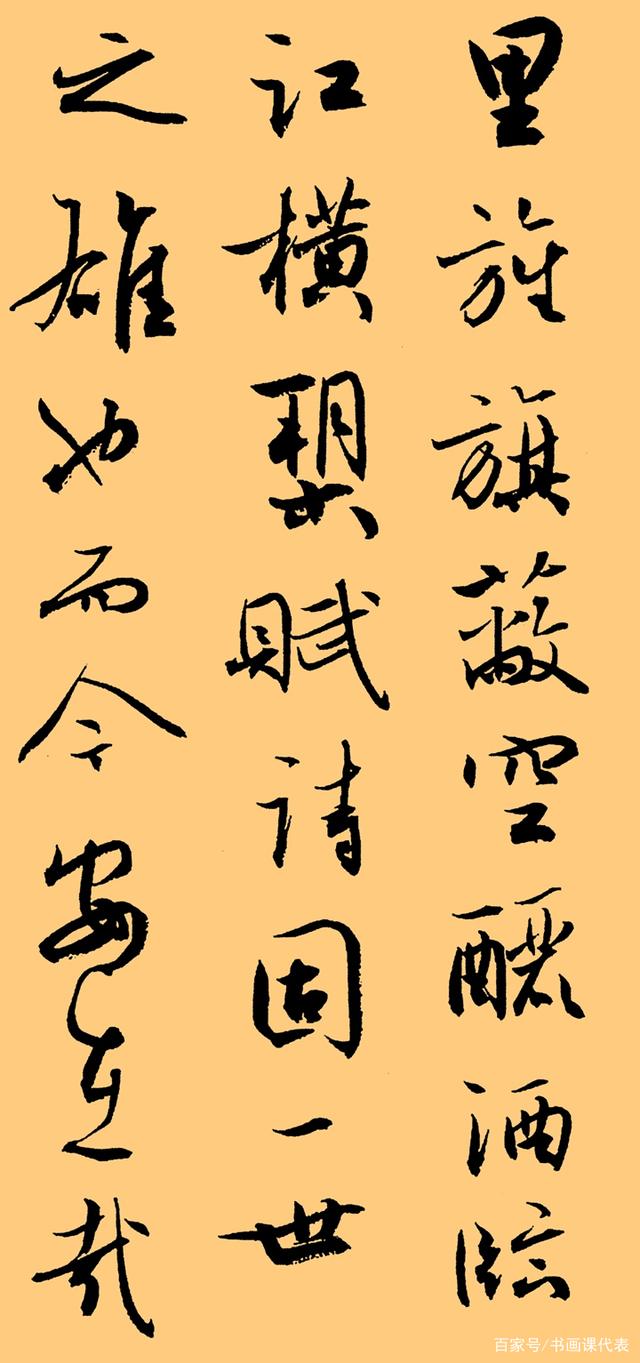 里旌旗蔽空釃酒臨
江橫槊賦詩固一世
之雄也而今安在哉
百家号/书画课代表